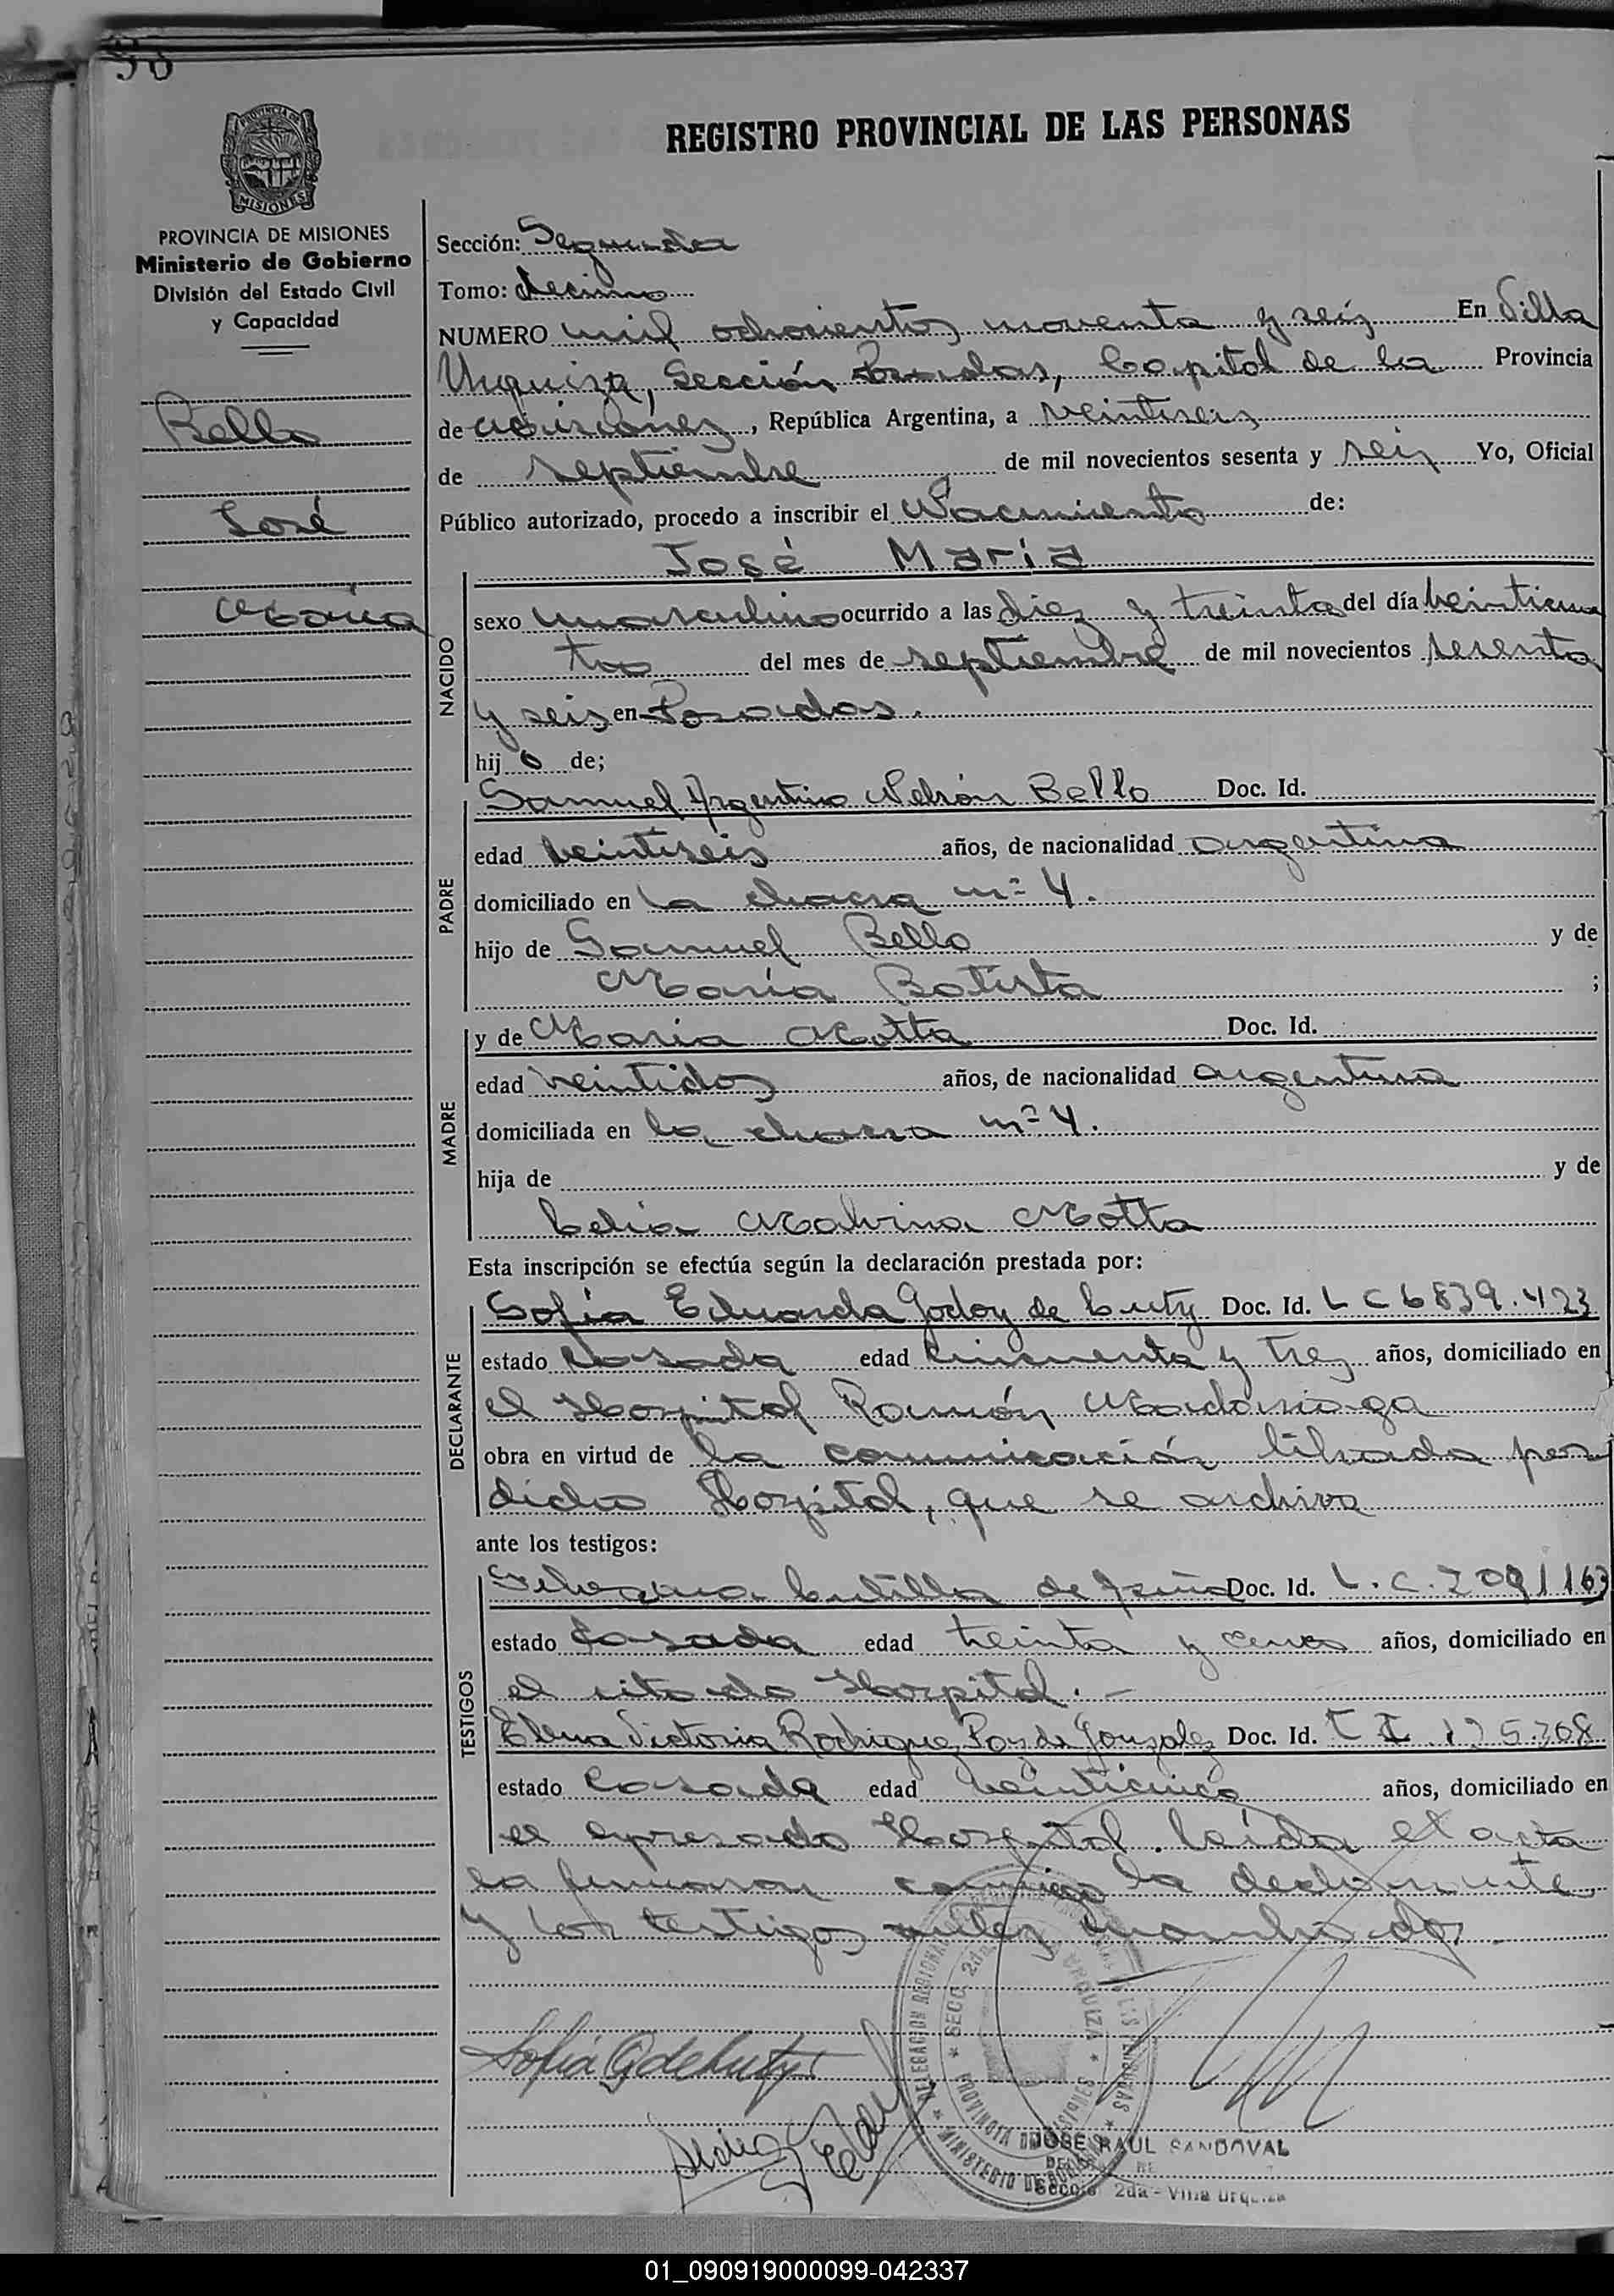 98
REGISTRO PROVINCIAL DE LAS PERSONAS
PROVINCIA DE
MISIONES
PROVINCIA DE MISIONES
Ministerio de Gobierno
División del Estado Civil
y Capacidad
Bello
José
María
Sección: Segunda
Tomo: decimo
NUMERO mil ochocientos noventa y seis En Villa
Urquiza, Sección Posadas, Capital de la Provincia
de Misiones, República Argentina, a veintiseis
de septiembre de mil novecientos sesenta y seis Yo, Oficial
Público autorizado, procedo a inscribir el Nacimiento de:
José María
NACIDO
sexo masculino ocurrido a las diez y treinta del día veinticua
tro del mes de septiembre de mil novecientos sesenta
y seis en Posadas.
hijo de;
PADRE
Samuel Argentino Nelsón Bello Doc. Id.
edad veintiseis años, de nacionalidad argentina
domiciliado en la chacra nº 4.
hijo de Samuel Bello y de
María Batista ;
MADRE
y de María Motta Doc. Id.
edad veintidos años, de nacionalidad argentina
domiciliada en la chacra nº 4.
hija de y de
Celia Malvina Motta
Esta inscripción se efectúa según la declaración prestada por:
DECLARANTE
Sofía Eduarda Godoy de Cuty Doc. Id. L C 6839.423
estado casada edad cincuenta y tres años, domiciliado en
el Hospital Ramón Madariaga
obra en virtud de la comunicación librada por
dicho Hospital, que se archiva
ante los testigos:
TESTIGOS
de Doc. Id. L.C. 2091163
estado casada edad treinta y cinco años, domiciliado en
el citado Hospital.-
Elena Victoria Rodriguez de Gonzalez Doc. Id. C I 125.208
estado casada edad veinticinco años, domiciliado en
el expresado Hospital. Leída el acta
la firmaron conmigo la declarante
y los testigos antes nombrados.
Sofía G de Cuty
DELEGACION REGIONAL
SECC. 2da
URQUIZA
PROVINCIA DE MISIONES
MINISTERIO DE GOBIERNO
JOSE RAUL SANDOVAL
Sección 2da - Villa Urquiza
01_090919000099-042337